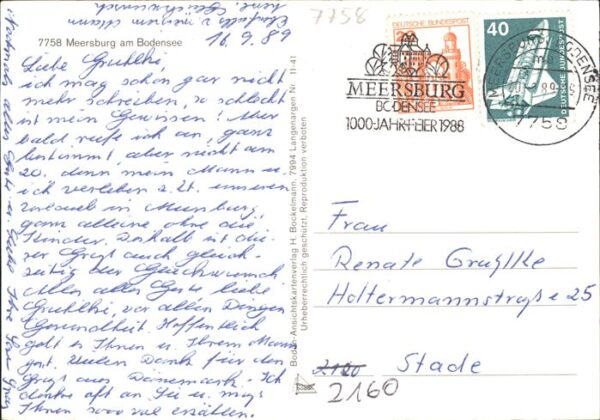 7758 Meersburg am Bodensee
16.9.89
Liebe Gruhlki,
ich mag schon gar nicht
mehr schreiben, so schlecht
ist mein Gewissen! Aber
bald rufe ich an, ganz
bestimmt, aber nicht am
20. denn mein Mann u.
ich verleben z. Zt. unseren
in Meersburg
ganz alleine ohne die
Kinder. Deshalb ist die-
ser Gruß auch gleich-
zeitig der Glückwunsch
Alles alles Gute liebe
Gruhlki, vor allen Dingen
Gesundheit. Hoffentlich
geht es Ihnen u. Ihrem Mann
gut. Vielen Dank für den
Gruß aus Dänemark. Ich
denke oft an Sie u. mag
Ihnen sooo viel erzählen.
Nochmals alles Gute u. Liebe Ihre
Ebenfalls v. meinem Mann
herz. Glückwunsch
Boden-Ansichtskartenverlag H. Bockelmann, 7994 Langenargen Nr. 11-41
Urheberrechtlich geschützt, Reproduktion verboten
7758
DEUTSCHE BUNDESPOST
40
DEUTSCHE BUNDESPOST
MEERSBURG
BODENSEE
1000-JAHR-FEIER 1988
MEERSBURG, BODENSEE
7758
Frau
Renate Gruhlke
Holtermannstraße 25
2120 Stade
2160